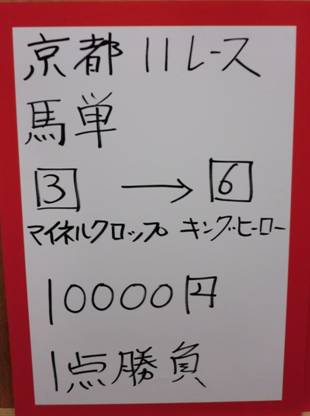 京都11レース
馬単
3 → 6
マイネルクロップ キングヒーロー
10000円
1点勝負